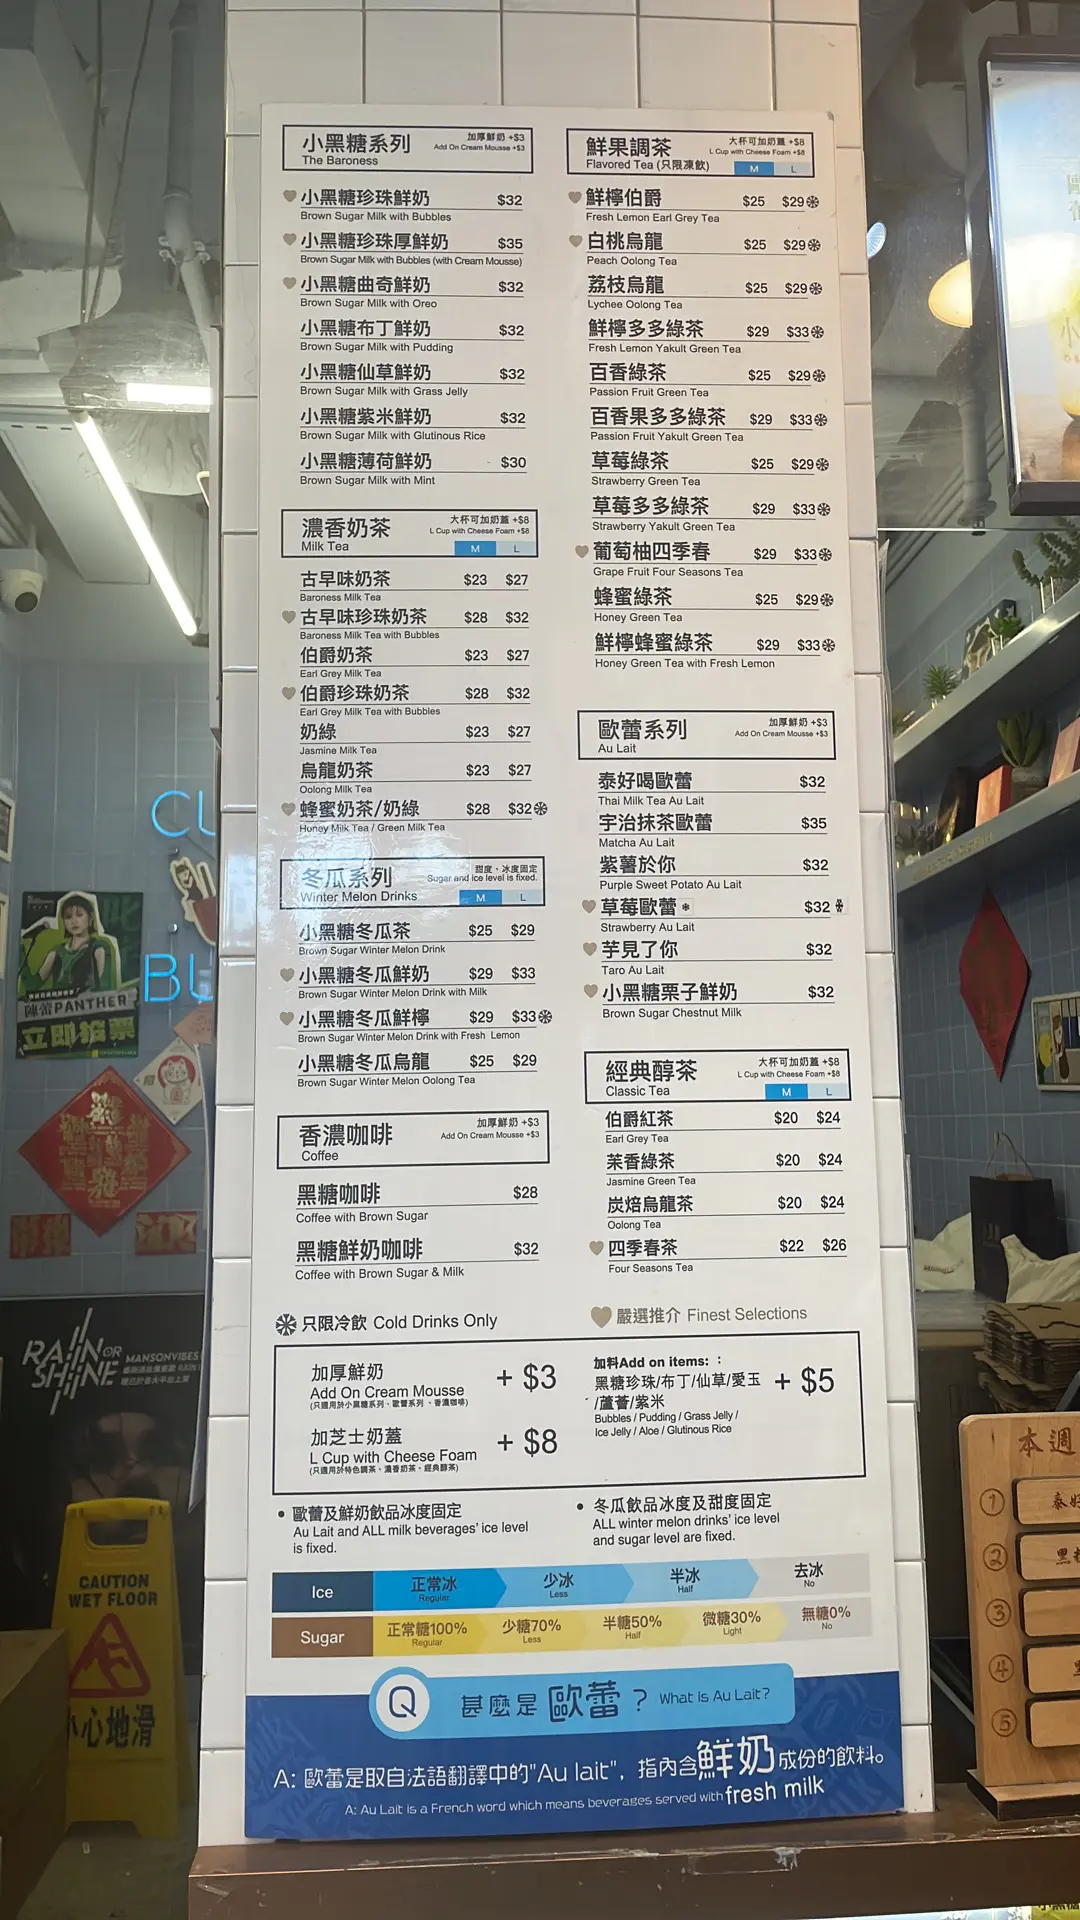 小黑糖系列
The Baroness
加厚鮮奶 +$3
Add On Cream Mousse +$3
小黑糖珍珠鮮奶 $32
Brown Sugar Milk with Bubbles
小黑糖珍珠厚鮮奶 $35
Brown Sugar Milk with Bubbles (with Cream Mousse)
小黑糖曲奇鮮奶 $32
Brown Sugar Milk with Oreo
小黑糖布丁鮮奶 $32
Brown Sugar Milk with Pudding
小黑糖仙草鮮奶 $32
Brown Sugar Milk with Grass Jelly
小黑糖紫米鮮奶 $32
Brown Sugar Milk with Glutinous Rice
小黑糖薄荷鮮奶 $30
Brown Sugar Milk with Mint
濃香奶茶
Milk Tea
大杯可加奶蓋 +$8
L Cup with Cheese Foam +$8
M L
古早味奶茶 $23 $27
Baroness Milk Tea
古早味珍珠奶茶 $28 $32
Baroness Milk Tea with Bubbles
伯爵奶茶 $23 $27
Earl Grey Milk Tea
伯爵珍珠奶茶 $28 $32
Earl Grey Milk Tea with Bubbles
奶綠 $23 $27
Jasmine Milk Tea
烏龍奶茶 $23 $27
Oolong Milk Tea
蜂蜜奶茶/奶綠 $28 $32
Honey Milk Tea / Green Milk Tea
冬瓜系列
Winter Melon Drinks
甜度、冰度固定
Sugar and ice level is fixed.
M L
小黑糖冬瓜茶 $25 $29
Brown Sugar Winter Melon Drink
小黑糖冬瓜鮮奶 $29 $33
Brown Sugar Winter Melon Drink with Milk
小黑糖冬瓜鮮檸 $29 $33
Brown Sugar Winter Melon Drink with Fresh Lemon
小黑糖冬瓜烏龍 $25 $29
Brown Sugar Winter Melon Oolong Tea
香濃咖啡
Coffee
加厚鮮奶 +$3
Add On Cream Mousse +$3
黑糖咖啡 $28
Coffee with Brown Sugar
黑糖鮮奶咖啡 $32
Coffee with Brown Sugar & Milk
鮮果調茶
Flavored Tea (只限凍飲)
大杯可加奶蓋 +$8
L Cup with Cheese Foam +$8
M L
鮮檸伯爵 $25 $29
Fresh Lemon Earl Grey Tea
白桃烏龍 $25 $29
Peach Oolong Tea
荔枝烏龍 $25 $29
Lychee Oolong Tea
鮮檸多多綠茶 $29 $33
Fresh Lemon Yakult Green Tea
百香綠茶 $25 $29
Passion Fruit Green Tea
百香果多多綠茶 $29 $33
Passion Fruit Yakult Green Tea
草莓綠茶 $25 $29
Strawberry Green Tea
草莓多多綠茶 $29 $33
Strawberry Yakult Green Tea
葡萄柚四季春 $29 $33
Grape Fruit Four Seasons Tea
蜂蜜綠茶 $25 $29
Honey Green Tea
鮮檸蜂蜜綠茶 $29 $33
Honey Green Tea with Fresh Lemon
歐蕾系列
Au Lait
加厚鮮奶 +$3
Add On Cream Mousse +$3
泰好喝歐蕾 $32
Thai Milk Tea Au Lait
宇治抹茶歐蕾 $35
Matcha Au Lait
紫薯於你 $32
Purple Sweet Potato Au Lait
草莓歐蕾 $32
Strawberry Au Lait
芋見了你 $32
Taro Au Lait
小黑糖栗子鮮奶 $32
Brown Sugar Chestnut Milk
經典醇茶
Classic Tea
大杯可加奶蓋 +$8
L Cup with Cheese Foam +$8
M L
伯爵紅茶 $20 $24
Earl Grey Tea
茉香綠茶 $20 $24
Jasmine Green Tea
炭焙烏龍茶 $20 $24
Oolong Tea
四季春茶 $22 $26
Four Seasons Tea
只限冷飲 Cold Drinks Only
嚴選推介 Finest Selections
加厚鮮奶 + $3
Add On Cream Mousse
(只適用於小黑糖系列、歐蕾系列、香濃咖啡)
加芝士奶蓋 + $8
L Cup with Cheese Foam
(只適用於特色調茶、濃香奶茶、經典醇茶)
加料Add on items: :
黑糖珍珠/布丁/仙草/愛玉 + $5
/蘆薈/紫米
Bubbles / Pudding / Grass Jelly /
Ice Jelly / Aloe / Glutinous Rice
• 歐蕾及鮮奶飲品冰度固定
Au Lait and ALL milk beverages' ice level
is fixed.
• 冬瓜飲品冰度及甜度固定
ALL winter melon drinks' ice level
and sugar level are fixed.
Ice 正常冰 少冰 半冰 去冰
Regular Less Half No
Sugar 正常糖100% 少糖70% 半糖50% 微糖30% 無糖0%
Regular Less Half Light No
Q 甚麼是歐蕾？ What is Au Lait?
A: 歐蕾是取自法語翻譯中的"Au lait"，指內含鮮奶成份的飲料。
A: Au Lait is a French word which means beverages served with fresh milk
CU
BU
陳蕾PANTHER
立即投票
RAIN OR SHINE
MANSONVIBES
CAUTION
WET FLOOR
小心地滑
本週
①
②
③
④
⑤